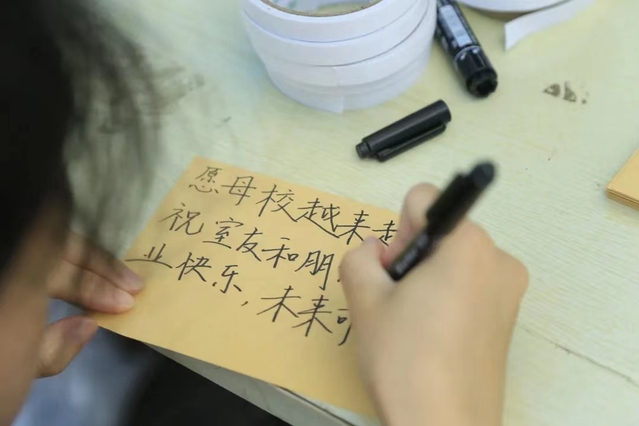 愿母校越来越
祝室友和朋
业快乐,未来可